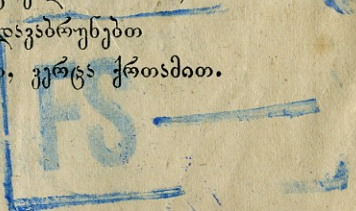 დავაბრუნებთ
, კერცა ქრთამით.
FS